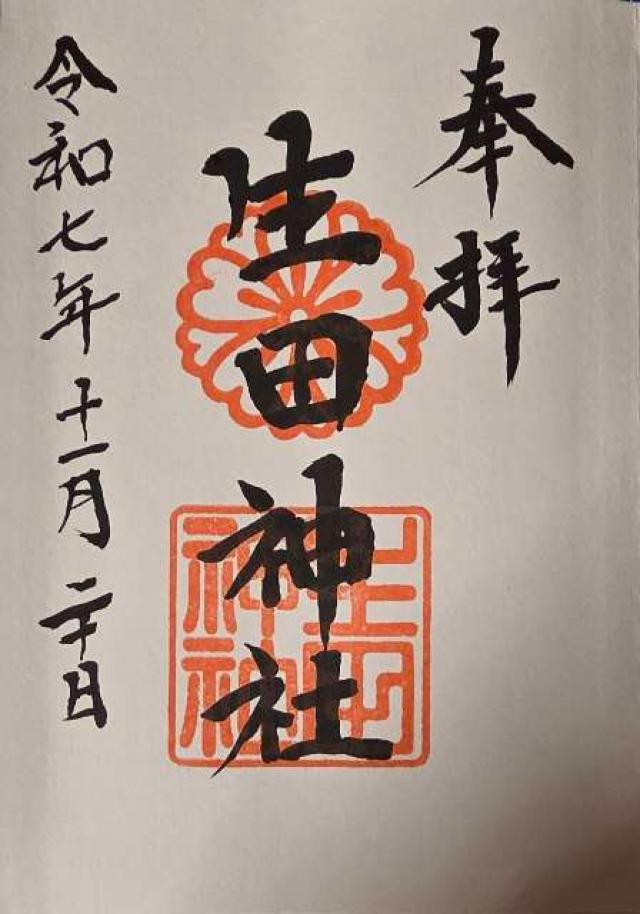 奉拝
生田神社
生田神社
令和七年十一月二十日